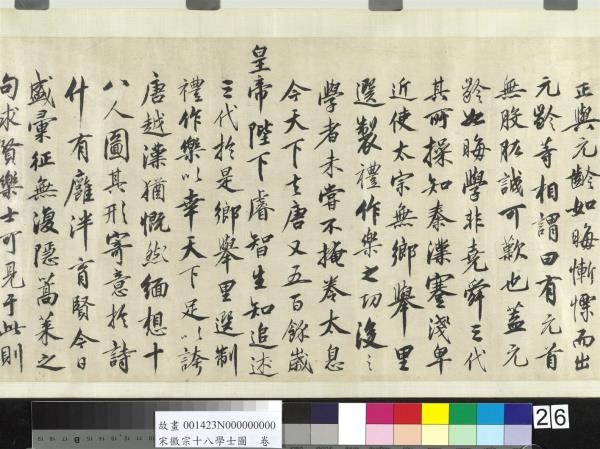 正與元齡如晦慚慄而出
元齡等相謂曰有元首
無股肱誠可歎也蓋元
齡如晦學非堯舜三代
其所操知秦漢蹇淺卑
近使太宗無鄉舉里
選製禮作樂之功後之
學者未嘗不掩卷太息
今天下去唐又五百餘歲
皇帝陛下睿智生知追述
三代於是鄉舉里選制
禮作樂以幸天下足以誇
唐越漢猶慨然緬想十
八人圖其形寄意於詩
什有廱泮育賢今日
盛彙征無復隱蒿萊之
句求賢樂士可見于此則
故畫 001423N000000000
宋徽宗十八學士圖 卷
26